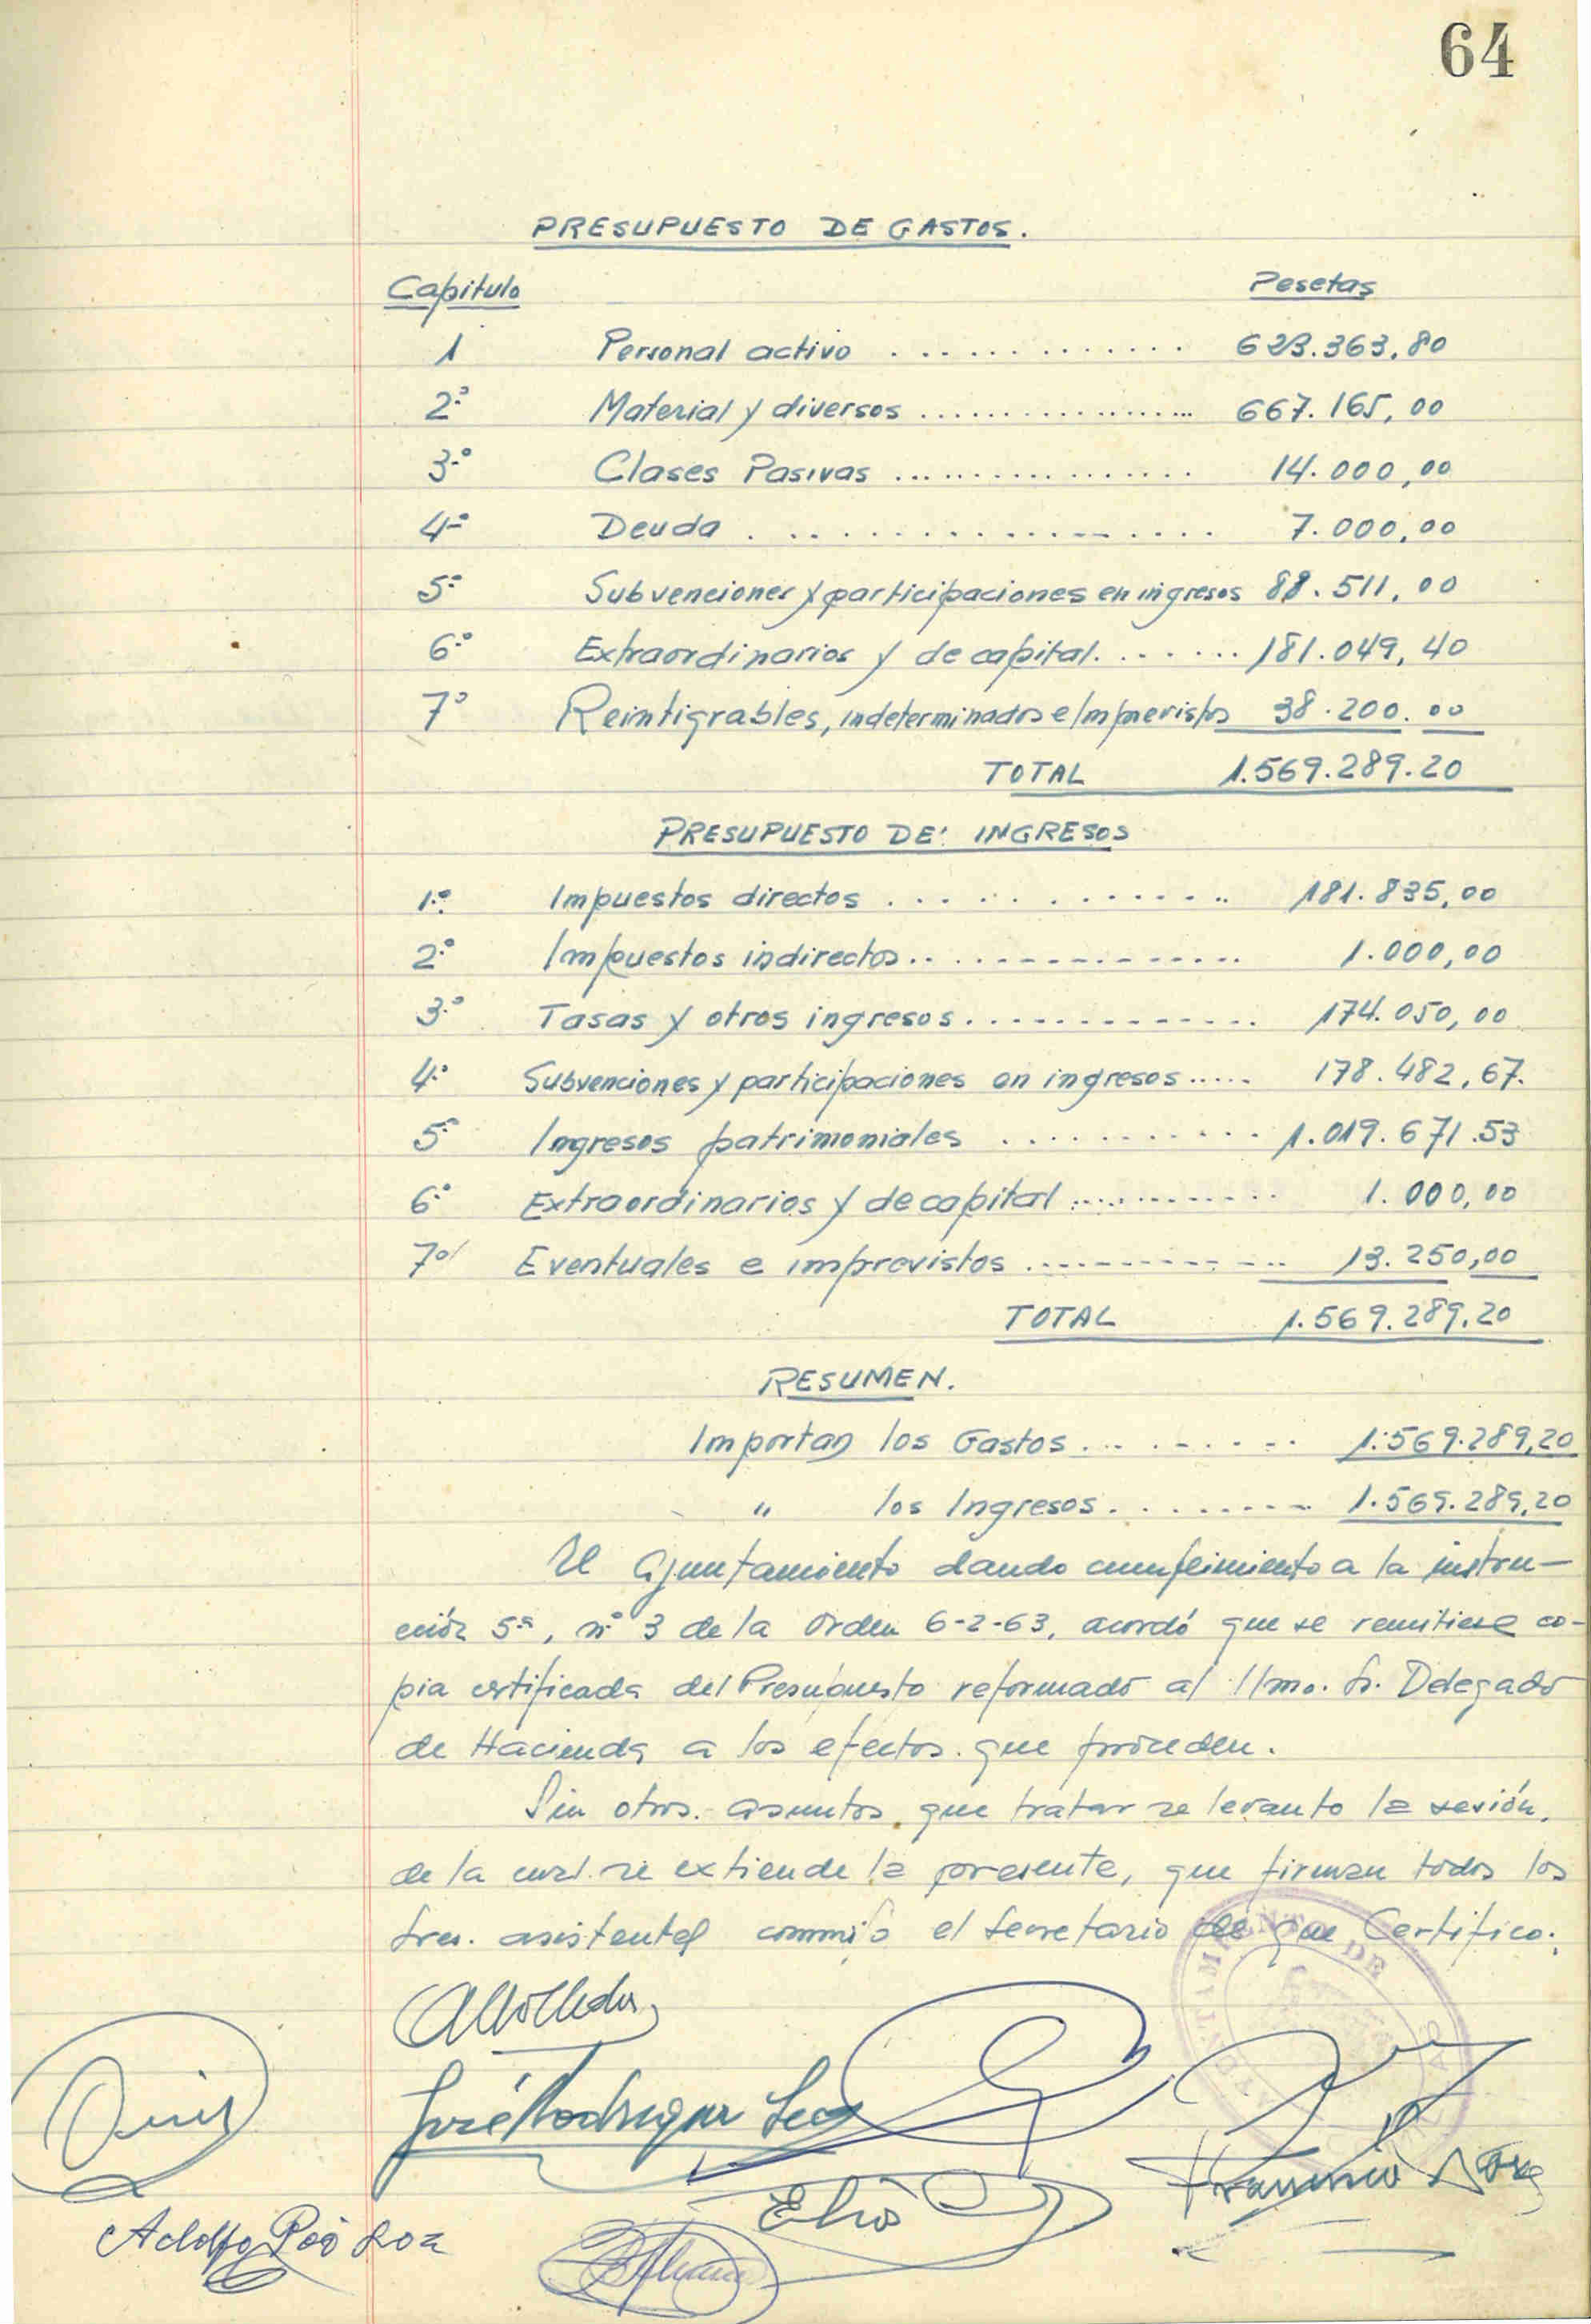 64
PRESUPUESTO DE GASTOS.
Capitulo Pesetas
1 Personal activo ............. 623.363,80
2.º Material y diversos ................. 667.165,00
3.º Clases Pasivas ................ 14.000,00
4.º Deuda .................. 7.000,00
5.º Subvenciones y participaciones en ingresos 88.511,00
6.º Extraordinarios y de capital ....... 181.049,40
7º Reintigrables, indeterminados e Imprevistos 38.200.00
TOTAL 1.569.289.20
PRESUPUESTO DE INGRESOS
1.º Impuestos directos ............. 181.835,00
2.º Impuestos indirectos ............... 1.000,00
3.º Tasas y otros ingresos ............. 174.050,00
4.º Subvenciones y participaciones en ingresos ..... 178.482,67.
5.º Ingresos patrimoniales ........... 1.019.671.53
6.º Extraordinarios y de capital ............ 1.000,00
7º Eventuales e imprevistos ............ 13.250,00
TOTAL 1.569.289,20
RESUMEN.
Importan los Gastos .......... 1.569.289,20
" los Ingresos ......... 1.569.289,20
El Ayuntamiento dando cumplimiento a la instru-
cción 5ª, nº 3 de la Orden 6-2-63, acordó que se remitiese co-
pia certificada del Presupuesto reformado al Ilmo. Sr. Delegado
de Hacienda a los efectos que proceden.
Sin otros asuntos que tratar se levanto la sesión,
de la cual se extiende la presente, que firman todos los
Sres. asistentes conmigo el Secretario de que Certifico.
José Rodriguez
Elio
Francisco
Adolfo